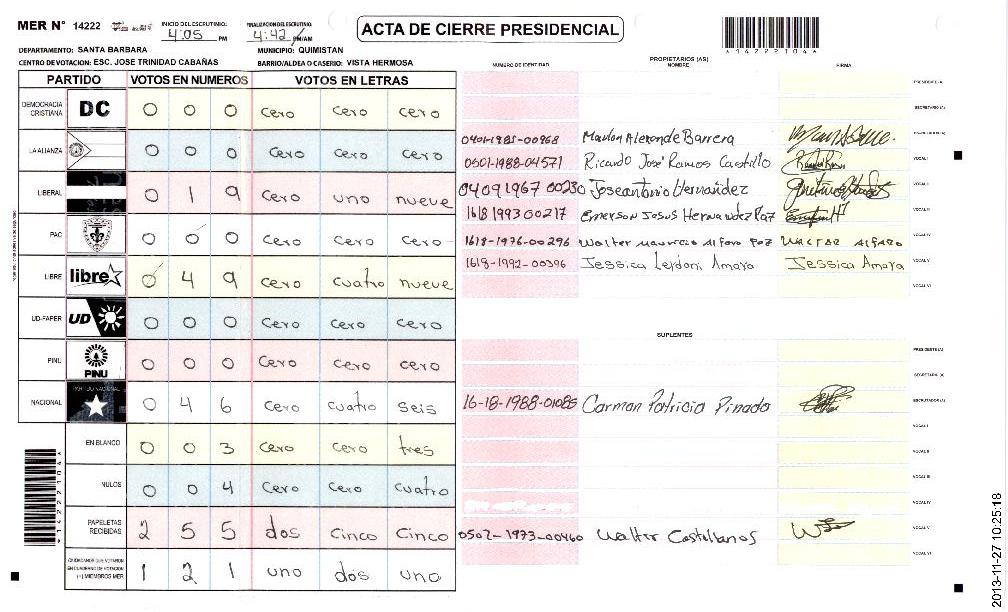 MER N° 14222
INICIO DEL ESCRUTINIO: 4:05 PM
FINALIZACION DEL ESCRUTINIO: 4:42 PM/AM
ACTA DE CIERRE PRESIDENCIAL
*14222104*
DEPARTAMENTO: SANTA BARBARA MUNICIPIO: QUIMISTAN
CENTRO DE VOTACION: ESC. JOSE TRINIDAD CABAÑAS BARRIO/ALDEA O CASERIO: VISTA HERMOSA
PARTIDO VOTOS EN NUMEROS VOTOS EN LETRAS
DEMOCRACIA CRISTIANA DC 0 0 0 cero cero cero
LA ALIANZA 0 0 0 cero cero cero
LIBERAL 0 1 9 cero uno nueve
PAC 0 0 0 cero cero cero
LIBRE libre 0 4 9 cero cuatro nueve
UD-FAPER UD 0 0 0 cero cero cero
PINU PINU 0 0 0 cero cero cero
NACIONAL PARTIDO NACIONAL 0 4 6 cero cuatro seis
EN BLANCO 0 0 3 cero cero tres
NULOS 0 0 4 cero cero cuatro
PAPELETAS RECIBIDAS 2 5 5 dos cinco cinco
CIUDADANOS QUE VOTARON EN CUADERNO DE VOTACION (+) MIEMBROS MER 1 2 1 uno dos uno
*14222104*
PROPIETARIOS (AS)
NUMERO DE IDENTIDAD NOMBRE FIRMA
PRESIDENTE (A)
SECRETARIO (A)
0401-1985-00968 Marlon Alexande Barrera ESCRUTADOR (A)
0501-1988-04571 Ricardo José Ramos Castillo VOCAL I
04091967 00230 Joseantonio Hernandez VOCAL II
1618 1993 00217 Emerson Josus Hernandez Paz VOCAL III
1618-1976-00296 Walter Mauricio Alfaro Paz WALTER ALFARO VOCAL IV
1618-1992-00396 Jessica Leydani Amaya Jessica Amaya VOCAL V
VOCAL VI
SUPLENTES
PRESIDENTE (A)
SECRETARIO (A)
16-18-1988-01085 Carman Patricia Pinado ESCRUTADOR (A)
VOCAL I
VOCAL II
VOCAL III
VOCAL IV
0502-1973-00460 Walter Castellanos VOCAL V
VOCAL VI
2013-11-27 10:25:18